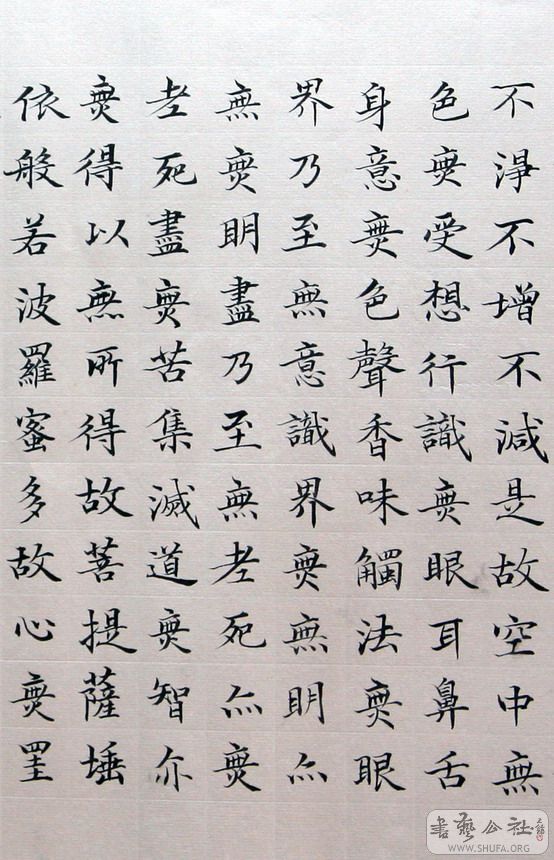 不淨不增不減是故空中無
色無受想行識無眼耳鼻舌
身意無色聲香味觸法無眼
界乃至無意識界無無明亦
無無明盡乃至無老死亦無
老死盡無苦集滅道無智亦
無得以無所得故菩提薩埵
依般若波羅蜜多故心無罣
書藝公社
WWW.SHUFA.ORG